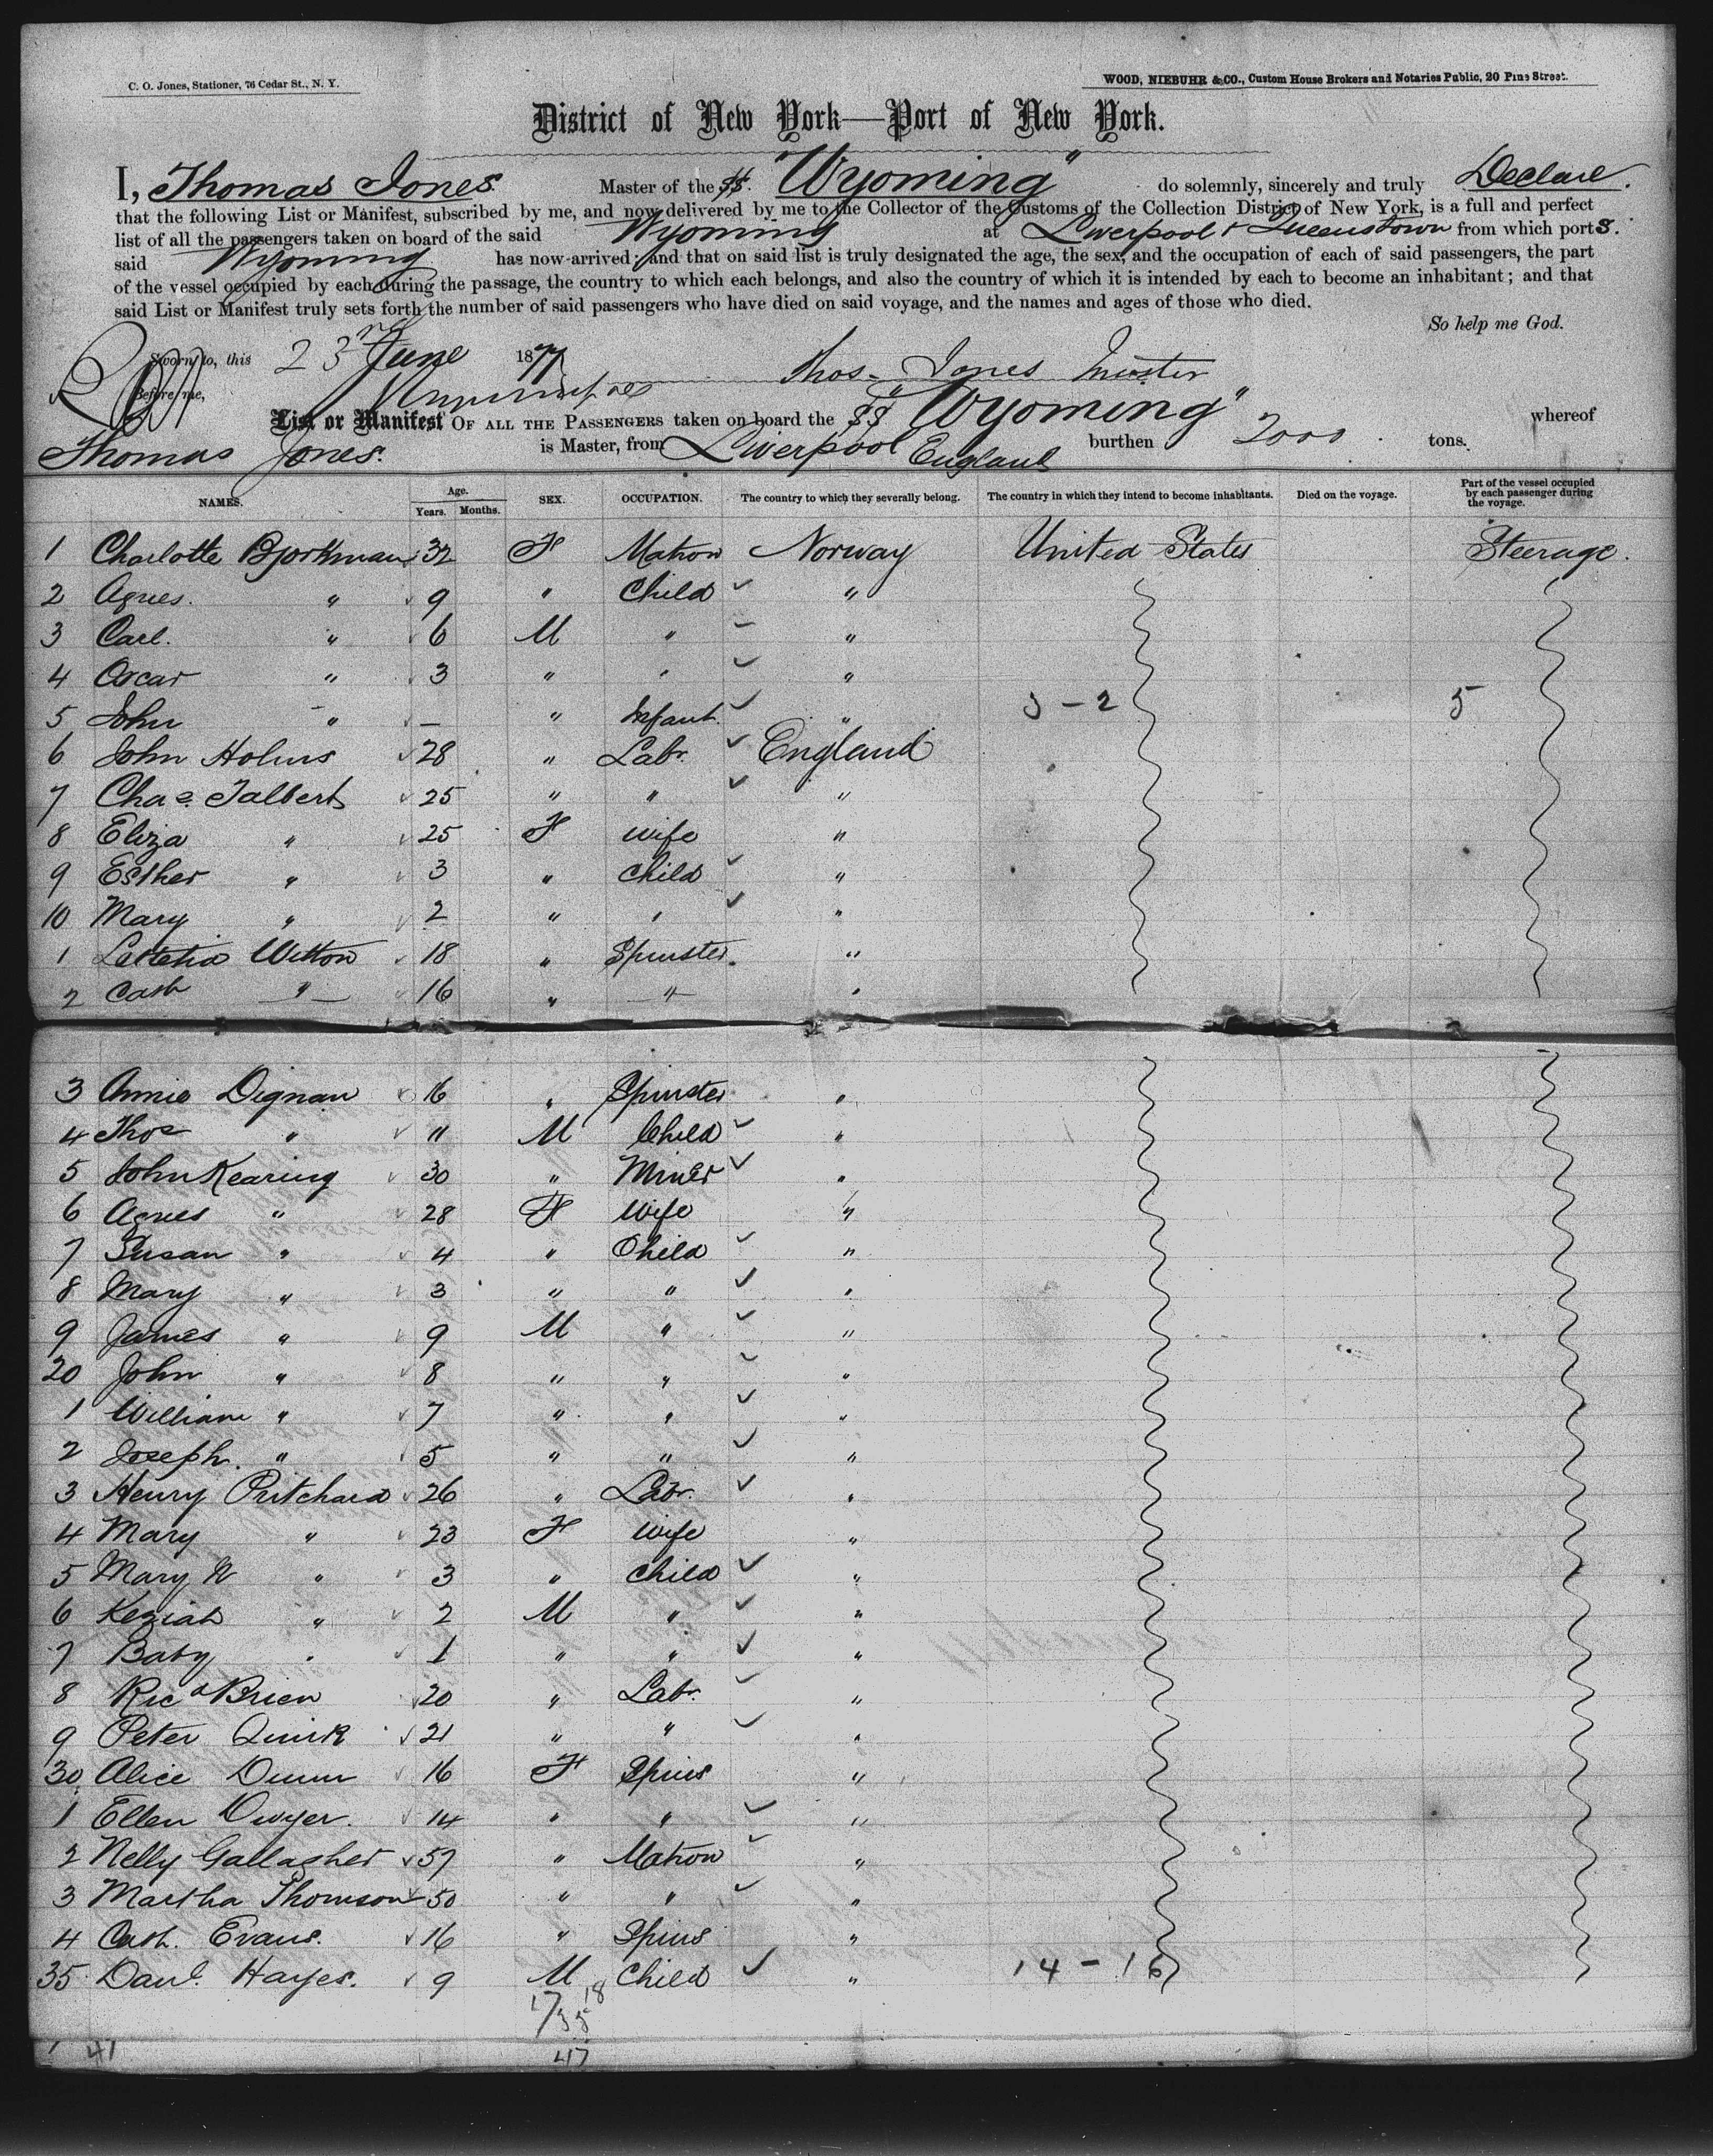 C. O. Jones, Stationer, 76 Cedar St., N. Y.
WOOD, NIEBUHR & CO., Custom House Brokers and Notaries Public, 20 Pine Street.
District of New York—Port of New York.
I, Thomas Jones Master of the SS. "Wyoming" do solemnly, sincerely and truly Declare.
that the following List or Manifest, subscribed by me, and now delivered by me to the Collector of the Customs of the Collection District of New York, is a full and perfect
list of all the passengers taken on board of the said Wyoming at Liverpool & Queenstown from which ports.
said Wyoming has now arrived; and that on said list is truly designated the age, the sex, and the occupation of each of said passengers, the part
of the vessel occupied by each during the passage, the country to which each belongs, and also the country of which it is intended by each to become an inhabitant; and that
said List or Manifest truly sets forth the number of said passengers who have died on said voyage, and the names and ages of those who died.
So help me God.
Sworn to, this 23rd June 1877
Thos. Jones Master
Before me,
List or Manifest OF ALL THE PASSENGERS taken on board the SS "Wyoming" whereof
Thomas Jones. is Master, from Liverpool England burthen 2000 tons.
NAMES. Age. Years. Months. SEX. OCCUPATION. The country to which they severally belong. The country in which they intend to become inhabitants. Died on the voyage. Part of the vessel occupied by each passenger during the voyage.
1 Charlotte Bjorkman 32 F Matron Norway United States Steerage.
2 Agnes. " 9 " Child "
3 Carl. " 6 M " "
4 Oscar " 3 " " "
5 John " — " Infant " 3-2 5
6 John Holms 28 " Labr. England
7 Chas. Talbert 25 " " "
8 Eliza " 25 F wife "
9 Esther " 3 " Child "
10 Mary " 2 " " "
1 Letetia Witton 18 " Spinster. "
2 Cath " 16 " " "
3 Annie Dignan 16 " Spinster "
4 Thos " 11 M Child "
5 John Kearing 30 " Miner "
6 Agnes " 28 F Wife "
7 Susan " 4 " Child "
8 Mary " 3 " " "
9 James " 9 M " "
20 John " 8 " " "
1 William " 7 " " "
2 Joseph. " 5 " " "
3 Henry Pritchard 26 " Labr. "
4 Mary " 23 F Wife "
5 Mary " 3 " Child "
6 Keziah " 2 M " "
7 Baby " 1 " " "
8 Ricd Brien 20 " Labr. "
9 Peter Quirk 21 " " "
30 Alice Dunn 16 F Spins "
1 Ellen Dwyer. 14 " " "
2 Nelly Gallagher 57 " Matron "
3 Martha Thomson 50 " " "
4 Cath. Evans. 16 " Spins "
35 Danl. Hayes. 9 M Child " 14-16
17 18
35
41 47